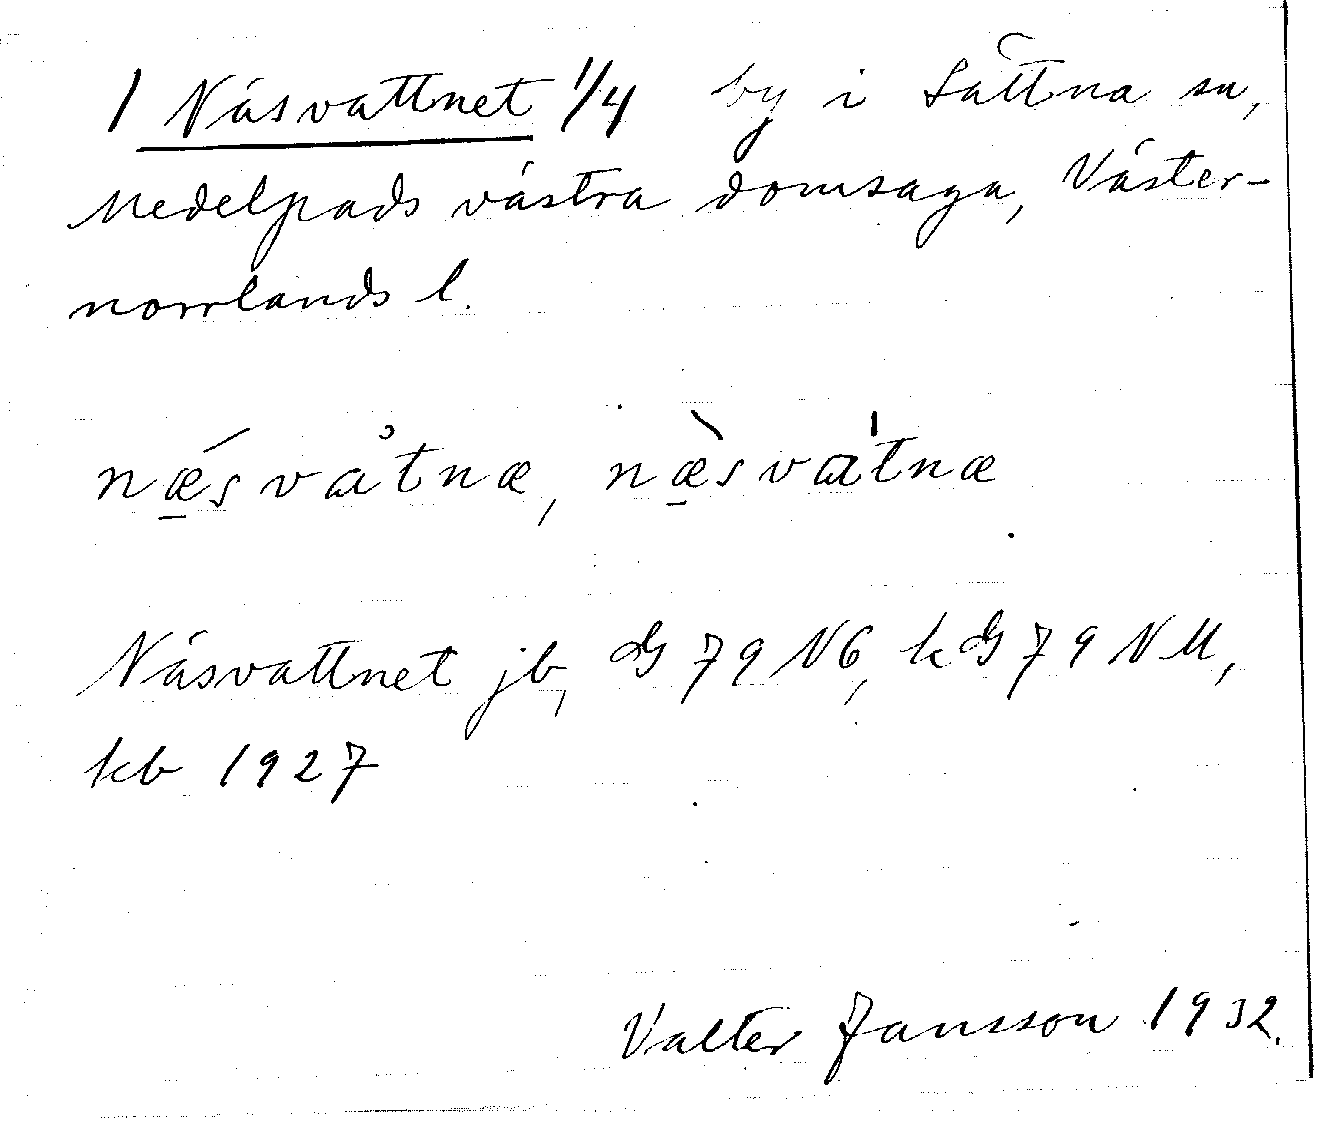 1 Näsvattnet 1/4 by i Sättna sn,
Medelpads västra domsaga, Väster-
norrlands l.
nǽ̱svat̊næ, næ̱̀svat̍næ
Näsvattnet jb, G 79 N6, kG 79 NM,
kb 1927
Valter Jansson 1932.